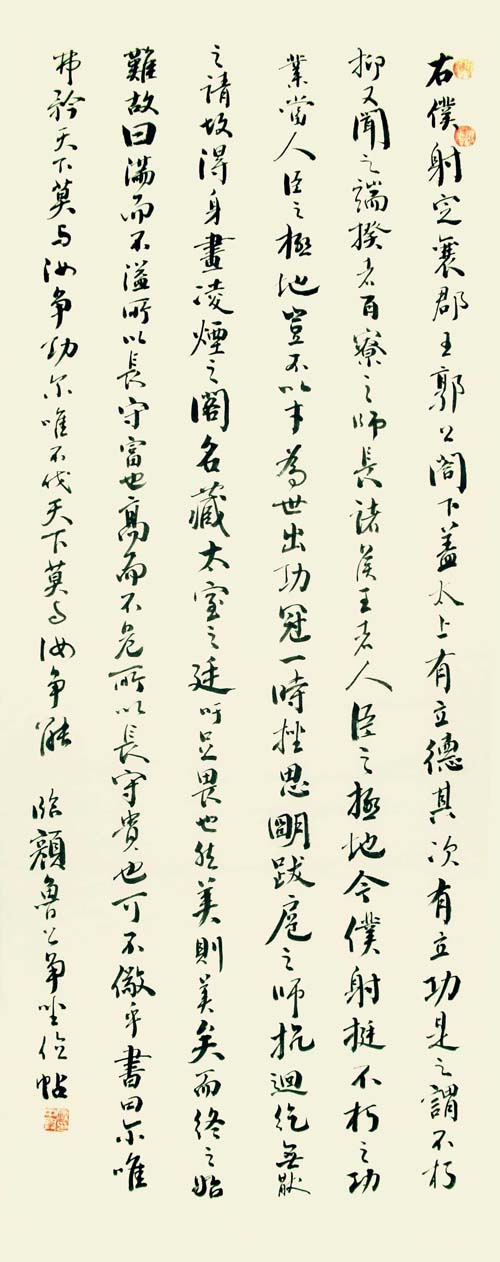 右僕射定襄郡王郭公閤下蓋太上有立德其次有立功是之謂不朽
抑又聞之端揆者百寮之師長諸侯王者人臣之極地今僕射挺不朽之功
業當人臣之極地豈不以才為世出功冠一時挫思明跋扈之師抗迴紇無猒
之請故得身畫凌煙之閣名藏太室之廷吁足畏也然美則美矣而終之始
難故曰滿而不溢所以長守富也高而不危所以長守貴也可不儆乎書曰尔唯
弗矜天下莫与汝争功尔唯不伐天下莫与汝争能 臨顏魯公争坐位帖